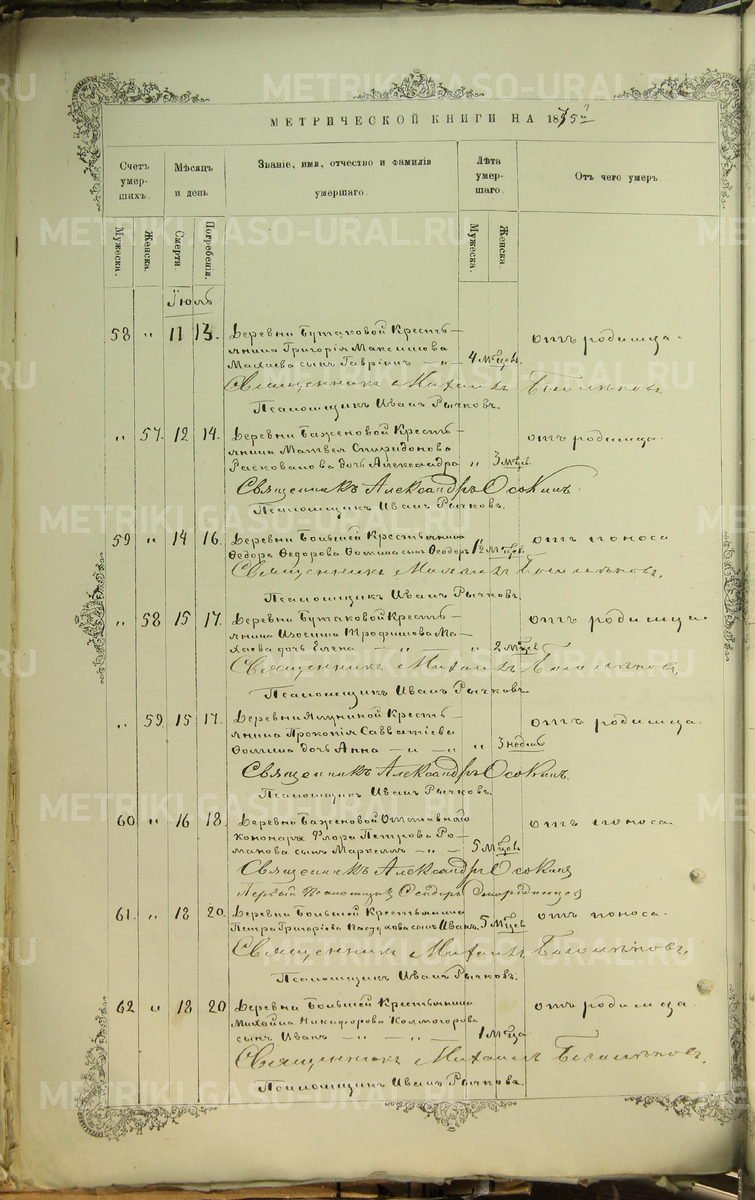 МЕТРИЧЕСКОЙ КНИГИ НА 1875й
Счетъ умер-шихъ.
Мѣсяцъ и день
Званіе, имя, отчество и фамилія умершаго.
Лѣта умер-шаго.
Отъ чего умеръ
Мужеска. Женска. Смерти. Погребенія. Мужеска. Женска.
Іюль
58 " 11 13. Деревни Бутаковой Кресть-
янина Григорія Максимова
Махаева сынъ Гавріилъ 4 мѣсяцев. отъ родимца.
Священникъ Михаилъ
Псаломщикъ Иванъ Рычковъ.
" 57. 12 14. Деревни Баженовой Кресть-
янина Матвея Спиридонова
Раскованова дочь Александра " 3 мѣсяц. отъ родимца.
Священникъ Александръ Осокинъ.
Псаломщикъ Иванъ Рычковъ.
59 " 14 16. Деревни Большей Крестьянина
Ѳедора Ѳедорова Ѳомина сынъ Ѳеодоръ 1½ мѣсяц. отъ поноса
Священникъ Михаилъ
Псаломщикъ Иванъ Рычковъ.
" 58 15 17. Деревни Бутаковой Кресть-
янина Трофимова Ма-
хаева дочь Елена " 2 мѣсяцев отъ родимца.
Священникъ Михаилъ
Псаломщикъ Иванъ Рычковъ
" 59. 15 17. Деревни Кресть-
янина Прокопія Савватіева
Ѳомина дочь Анна " 3 недѣль отъ родимца.
Священникъ Александръ Осокинъ.
Псаломщикъ Иванъ Рычковъ.
60 " 16 18. Деревни Баженовой Отставнаго
кононара Флора Петрова Ро-
манова сынъ Маркеллъ 5 мѣсяцев отъ поноса
Священникъ Александръ Осокинъ
Первый Псаломщикъ
61. " 18 20. Деревни Большей Крестьянина
Петра Григорьева сынъ Иванъ. 5 мѣсяцев отъ поноса.
Священникъ Михаилъ
Псаломщикъ Иванъ Рычковъ.
62 " 18 20 Деревни Большей Крестьянина
Михаила Никифорова Колмогорова
сынъ Иванъ 1 мѣсяца отъ родимца.
Священникъ Михаилъ
Псаломщикъ Иванъ Рычковъ.
METRIKI.GASO-URAL.RU